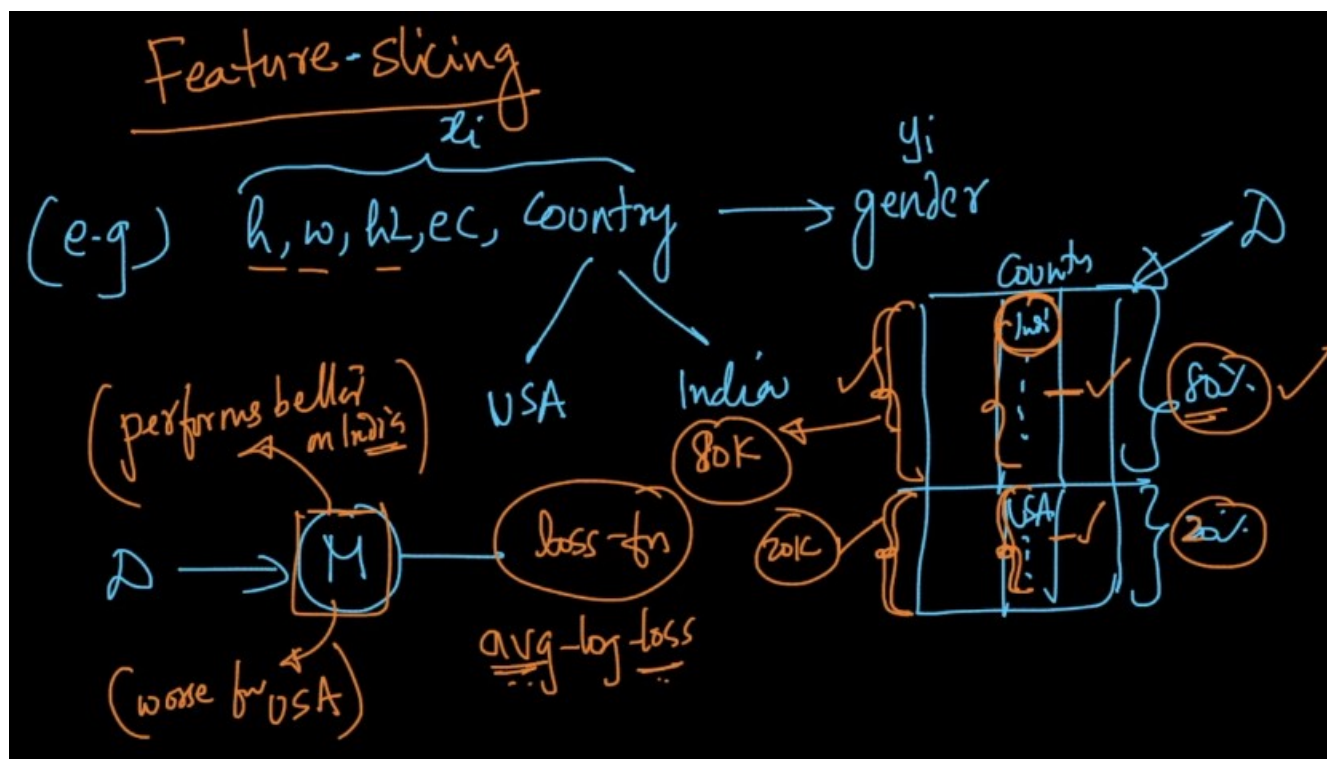 Feature-slicing
xi
yi
(e-g) h, w, hL, ec, Country → gender
D
Country
Indi
USA
India
80%
(performs better
on India)
80K
D → M
loss-fn
20K
USA
20%
avg-log-loss
(worse for USA)